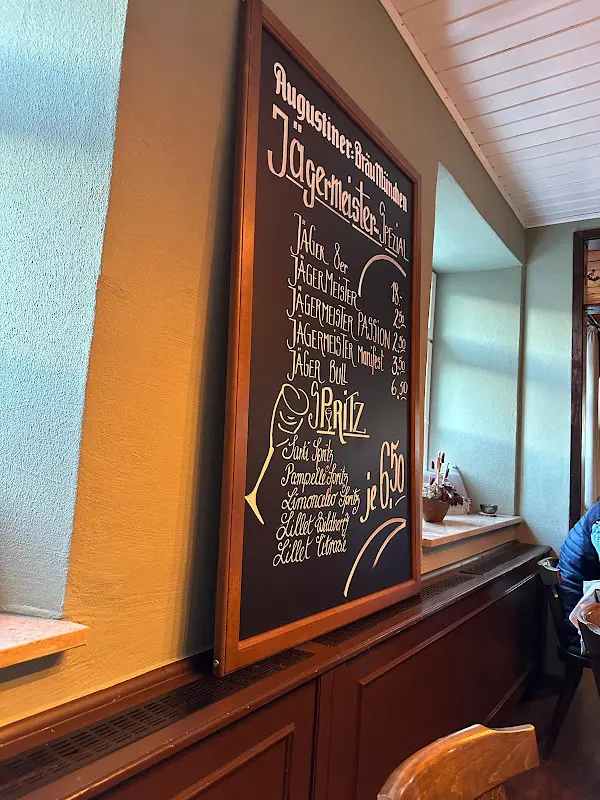 Augustiner-Bräu München
Jägermeister-Spezial
Jäger 8er 18.-
Jägermeister 2,50
Jägermeister Passion 2,50
Jägermeister Manifest 3,50
Jäger Bull 6,50
SPRITZ
Sarti Spritz
Pampelle Spritz
Limoncello Spritz
Lillet Wildberry
Lillet Citrasi
je 6,50